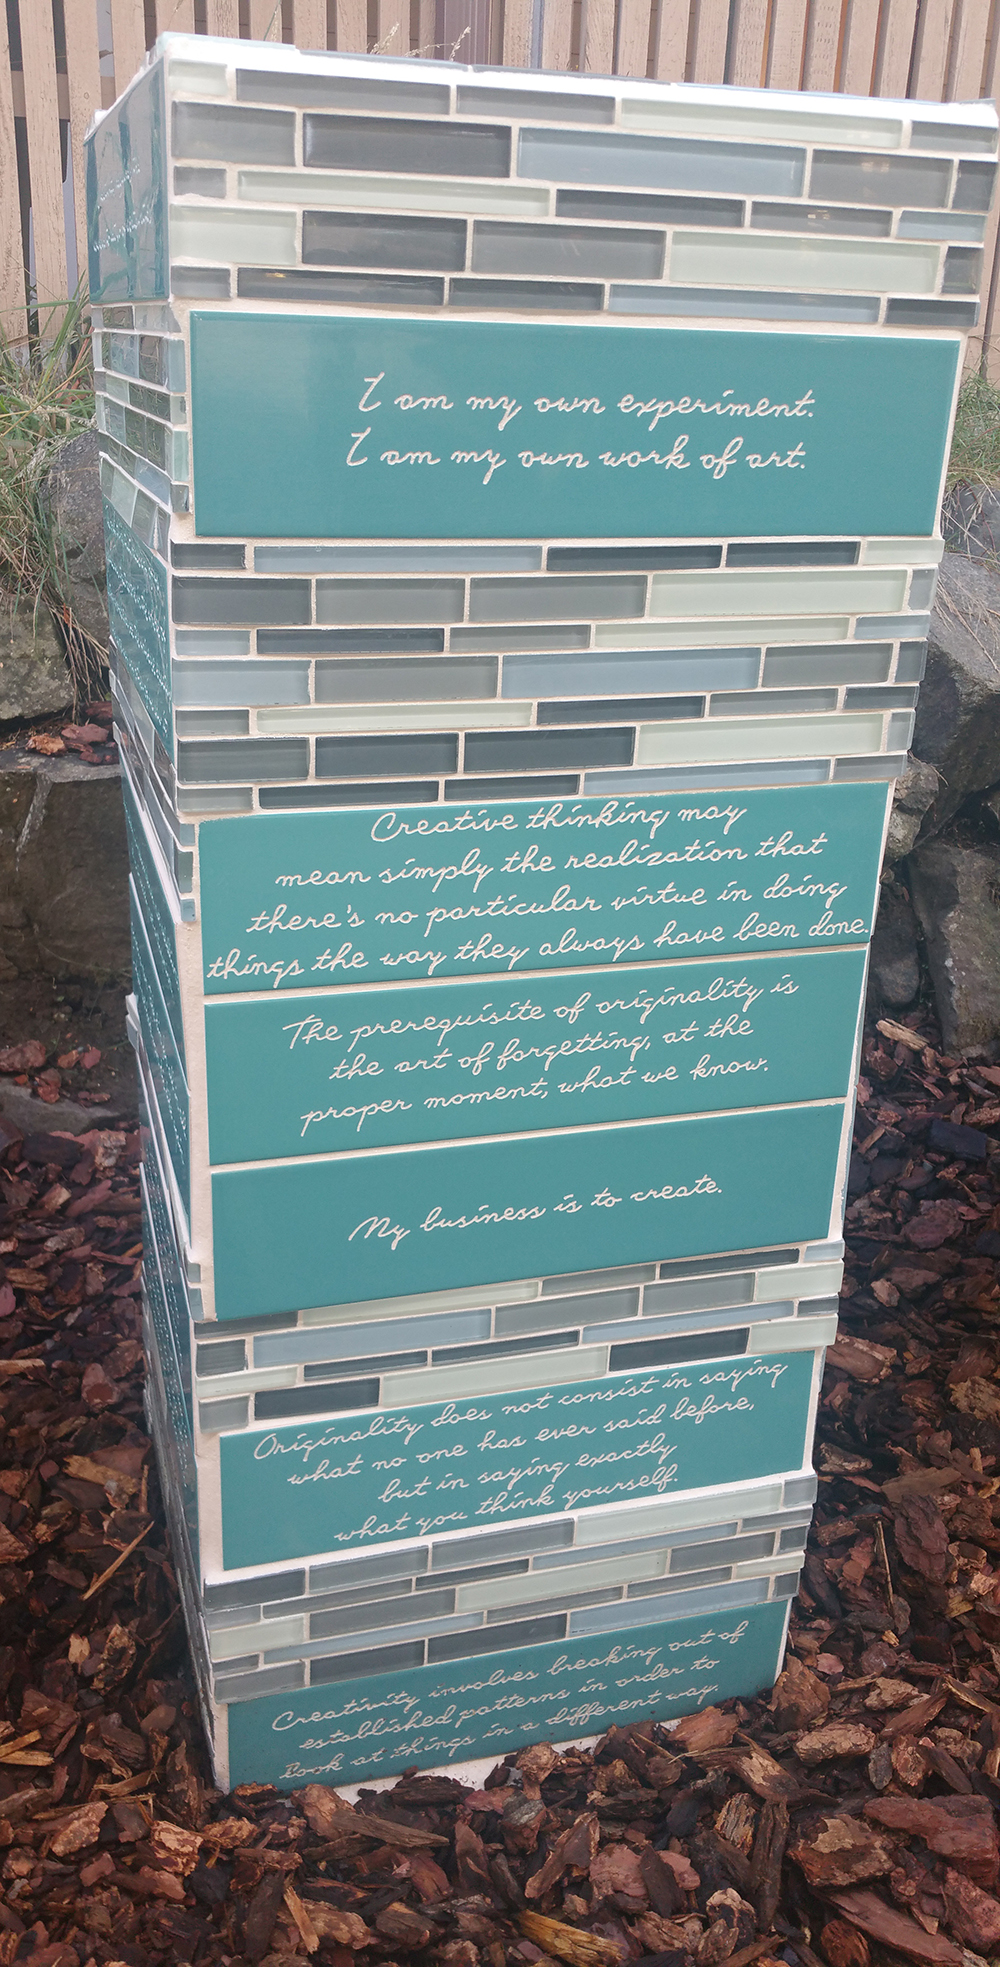 I am my own experiment.
I am my own work of art.
Creative thinking may
mean simply the realization that
there's no particular virtue in doing
things the way they always have been done.
The prerequisite of originality is
the art of forgetting, at the
proper moment, what we know.
My business is to create.
Originality does not consist in saying
what no one has ever said before,
but in saying exactly
what you think yourself.
Creativity involves breaking out of
established patterns in order to
look at things in a different way.